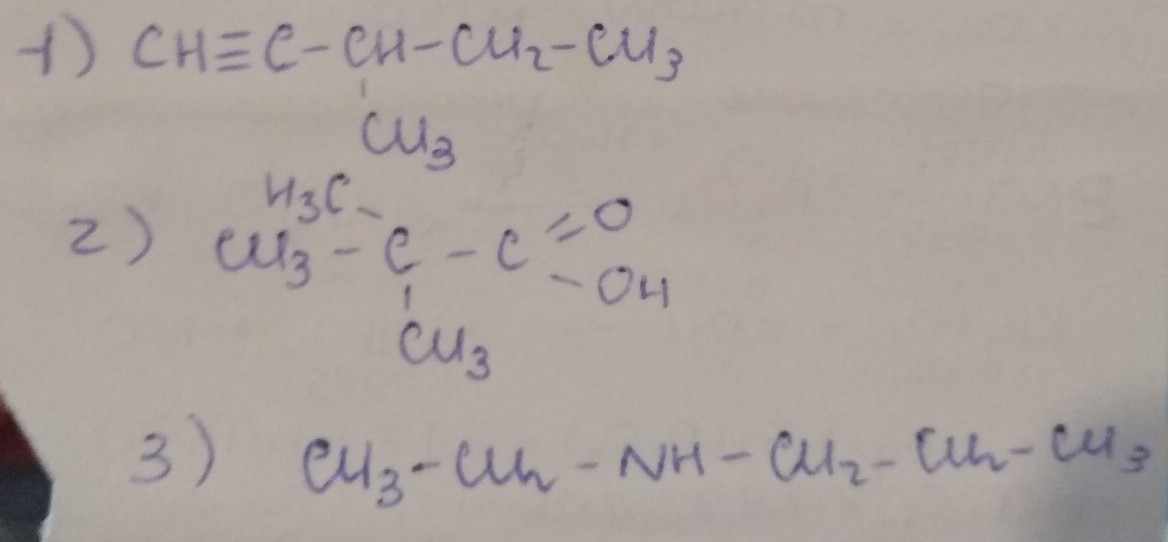 1) CH≡C-CH-CH₂-CH₃
CH₃
H₃C
2) CH₃-C-C=O
-OH
CH₃
3) CH₃-CH₂-NH-CH₂-CH₂-CH₃